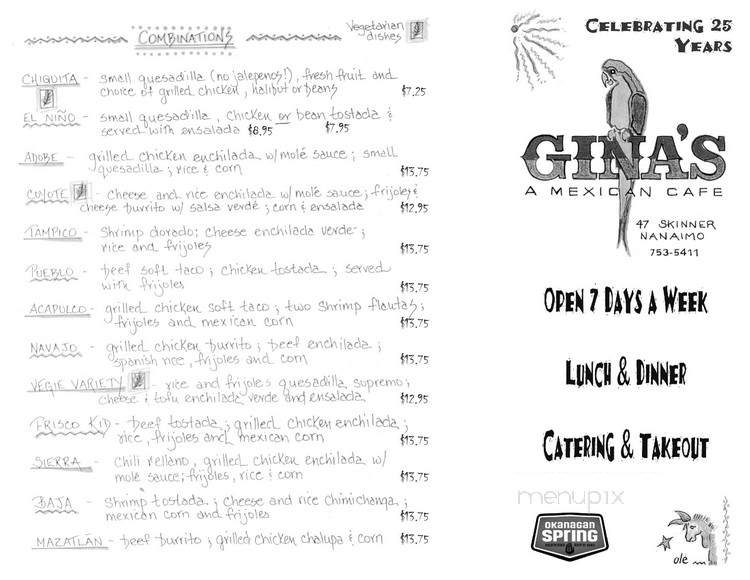 COMBINATIONS
Vegetarian
dishes
CHIQUITA - small quesadilla (no jalepenos!), fresh fruit and
choice of grilled chicken, halibut or beans $7.25
EL NIÑO - small quesadilla, chicken or bean tostada &
served with ensalada $8.95 $7.95
ADOBE - grilled chicken enchilada w/molé sauce; small
quesadilla; rice & corn $13.75
COYOTE - cheese and rice enchilada w/molé sauce; frijoles &
cheese burrito w/ salsa verdé; corn & ensalada $12.95
TAMPICO - Shrimp dorado; cheese enchilada verde;
rice and frijoles $13.75
PUEBLO - beef soft taco; chicken tostada; served
with frijoles $13.75
ACAPULCO - grilled chicken soft taco; two shrimp flautas;
frijoles and mexican corn $13.75
NAVAJO - grilled chicken burrito; beef enchilada;
spanish rice, frijoles and corn $13.75
VEGIE VARIETY - rice and frijoles quesadilla, supremo;
cheese & tofu enchilada verde and ensalada $12.95
FRISCO KID - beef tostada; grilled chicken enchilada;
rice, frijoles and mexican corn $13.75
SIERRA - chili rellano, grilled chicken enchilada w/
molé sauce; frijoles, rice & corn $13.75
BAJA - shrimp tostada; cheese and rice chimichanga;
mexican corn and frijoles $13.75
MAZATLÁN - beef burrito; grilled chicken chalupa & corn $13.75
CELEBRATING 25
YEARS
GINA'S
A MEXICAN CAFE
47 SKINNER
NANAIMO
753-5411
OPEN 7 DAYS A WEEK
LUNCH & DINNER
CATERING & TAKEOUT
menupix
OKANAGAN
SPRING
olé